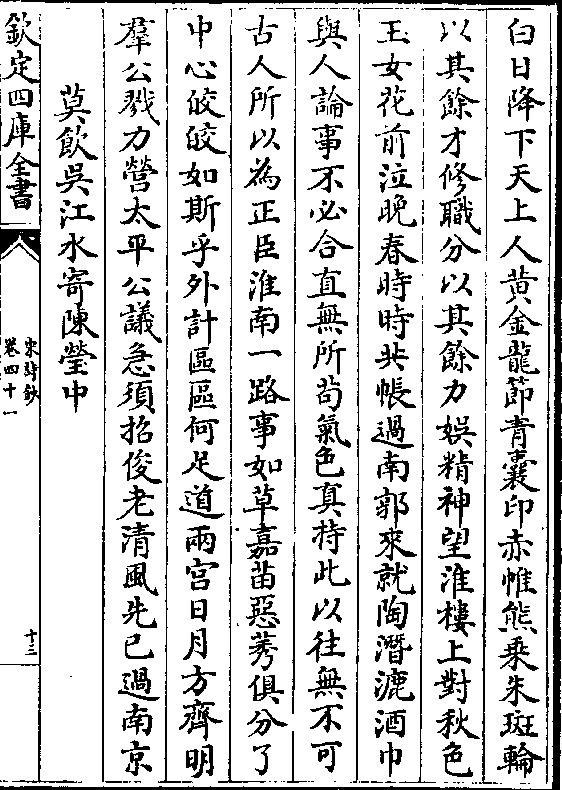 白日降下天上人黄金龍節青囊印赤帷熊乗朱斑輪
以其餘才修職分以其餘力娯精神望淮樓上對秋色
玉女花前泣晩春時時共帳過南郭來就陶潛漉酒巾
與人論事不必合直無所苟氣色真持此以往無不可
古人所以為正臣淮南一路事如草嘉苗惡莠俱分了
中心皎皎如斯乎外計區區何足道兩宫日月方齊明
羣公戮力營太平公議急須招俊老清風先已過南京
莫飲吳江水寄陳瑩中
欽定四庫全書
宋詩鈔
卷四十一
十三